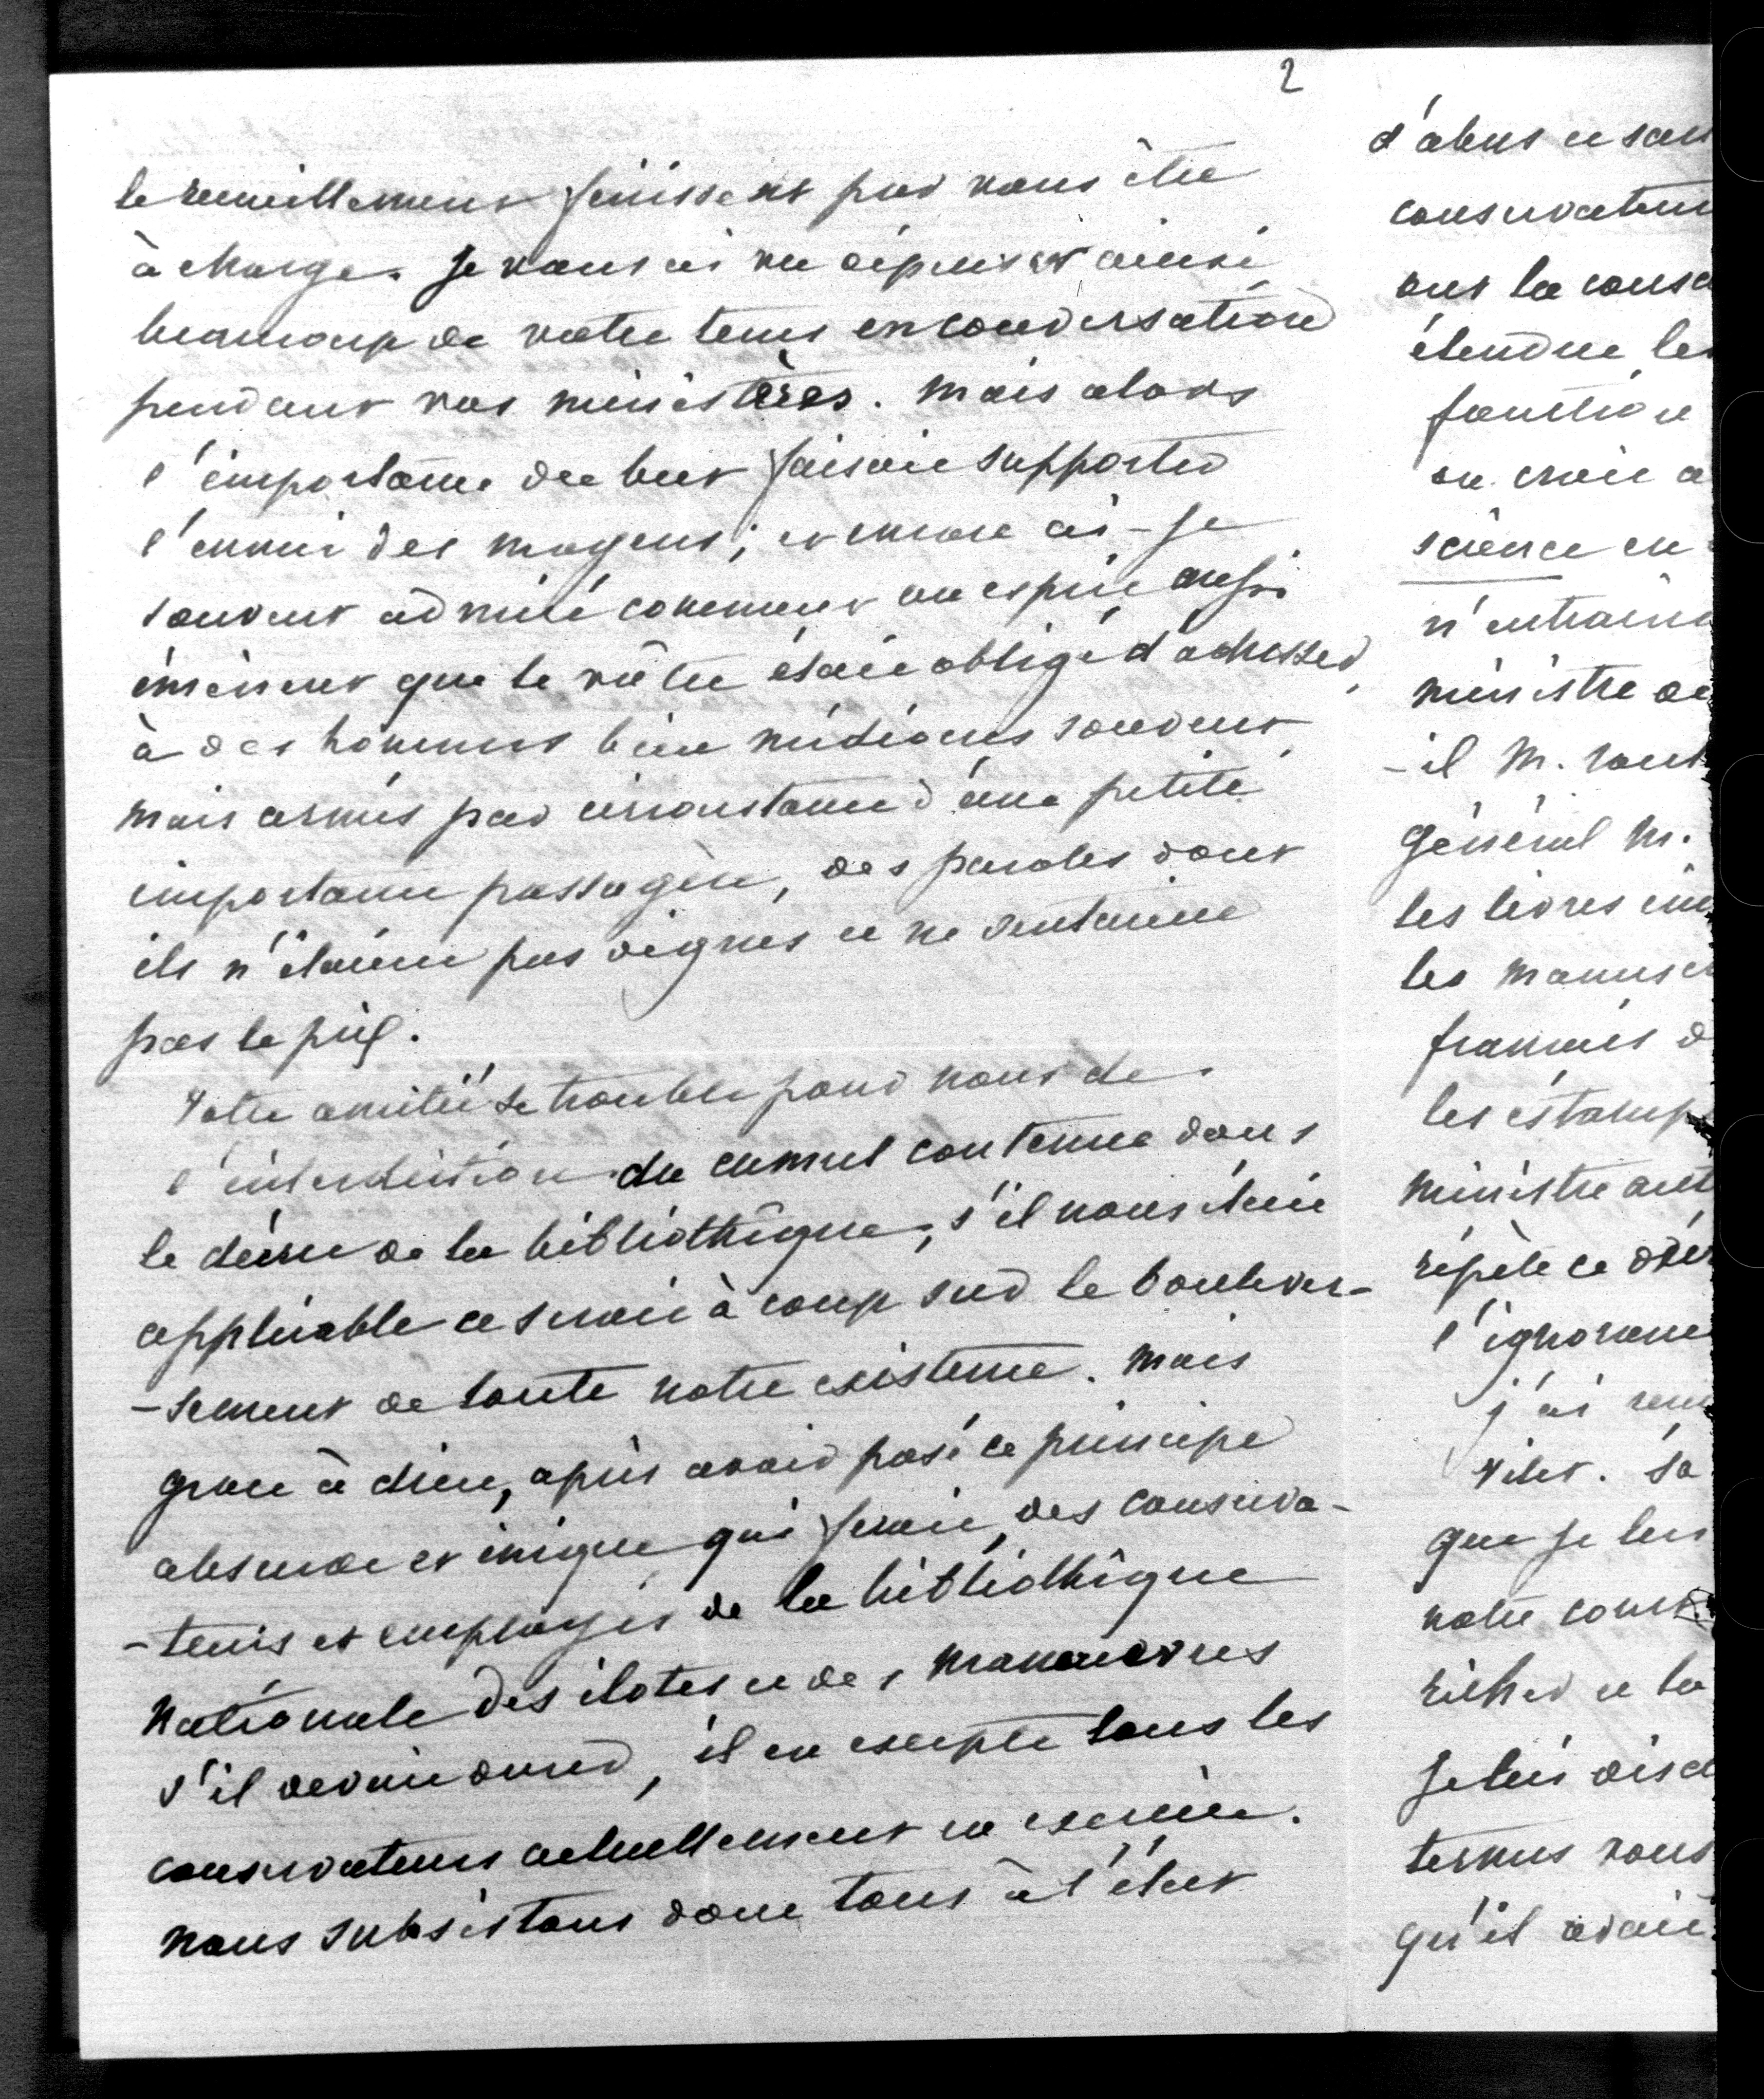 2
le recueillement finissent par vous être
à charge. Je vous ai vu dépenser ainsi
beaucoup de votre tems en conversation
pendant vos ministères. Mais alors
l'importance du but faisait supporter
l'ennui des moyens; et encore ai-je
souvent admiré comment un esprit aussi
éminent que le vôtre était obligé d'adresser,
à des hommes bien médiocres souvent,
mais armés par circonstance d'une petite
importance passagère, des paroles dont
ils n'étaient pas dignes et ne sentaient
pas le prix.
Votre amitié se trouble pour nous de
l'interdiction du cumul contenue dans
le décret de la bibliothèque; s'il nous était
applicable ce serait à coup sur leboulever-
-sement de toute notre existence. Mais
grace à dieu, après avoir posé ce principe
absurde et inique qui ferait, des conserva-
-teurs et employés de la bibliothèque
nationale des ilotes et des manoeuvres
s'il devait durer, il en excepte tous les
conservateurs actuellement en exercice.
nous subsistons donc tous à l'état
d'abus et san
conservateur
ont la consc
étendue les
fonction
on croit a
science en
n'entraîn
ministre de
-il M.
général M.
les livres im
les manusc
français d
les estamp
ministre aut
répète ce
l'ignorance
j'ai
que je lui
notre
et la
Je lui
termes vous
qu'il avait